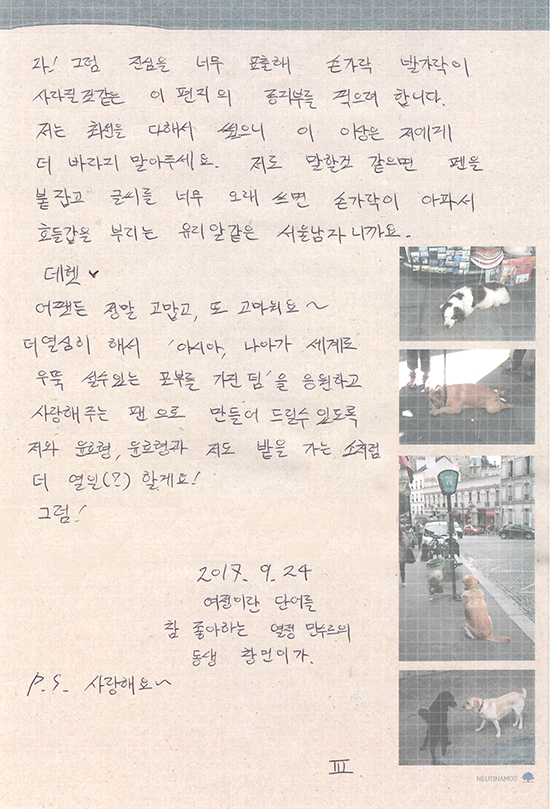 자! 그럼 진심을 너무 표출해 손가락 발가락이
사라질것같은 이 편지의 종지부를 찍으려 합니다.
저는 최선을 다해서 썼으니 이 이상은 저에게
더 바라지 말아주세요. 저도 말할것 같으면 펜을
붙잡고 글씨를 너무 오래 쓰면 손가락이 아파서
호들갑을 부리는 유리알같은 서울남자니까요.
데헷
어쨌든 정말 고맙고, 또 고마워요~
더열심히 해서 '아시아, 나아가 세계로
우뚝 설수있는 포부를 가진 팀'을 응원하고
사랑해주는 팬으로 만들어 드릴수있도록
저와 윤호형, 윤호형과 저도 밭을 가는 소처럼
더 열일(?) 할게요!
그럼!
2017. 9. 24
여정이란 단어를
참 좋아하는 열정 만수르의
동생 창민이가.
P.S. 사랑해요~
III
NEUTINAMOO